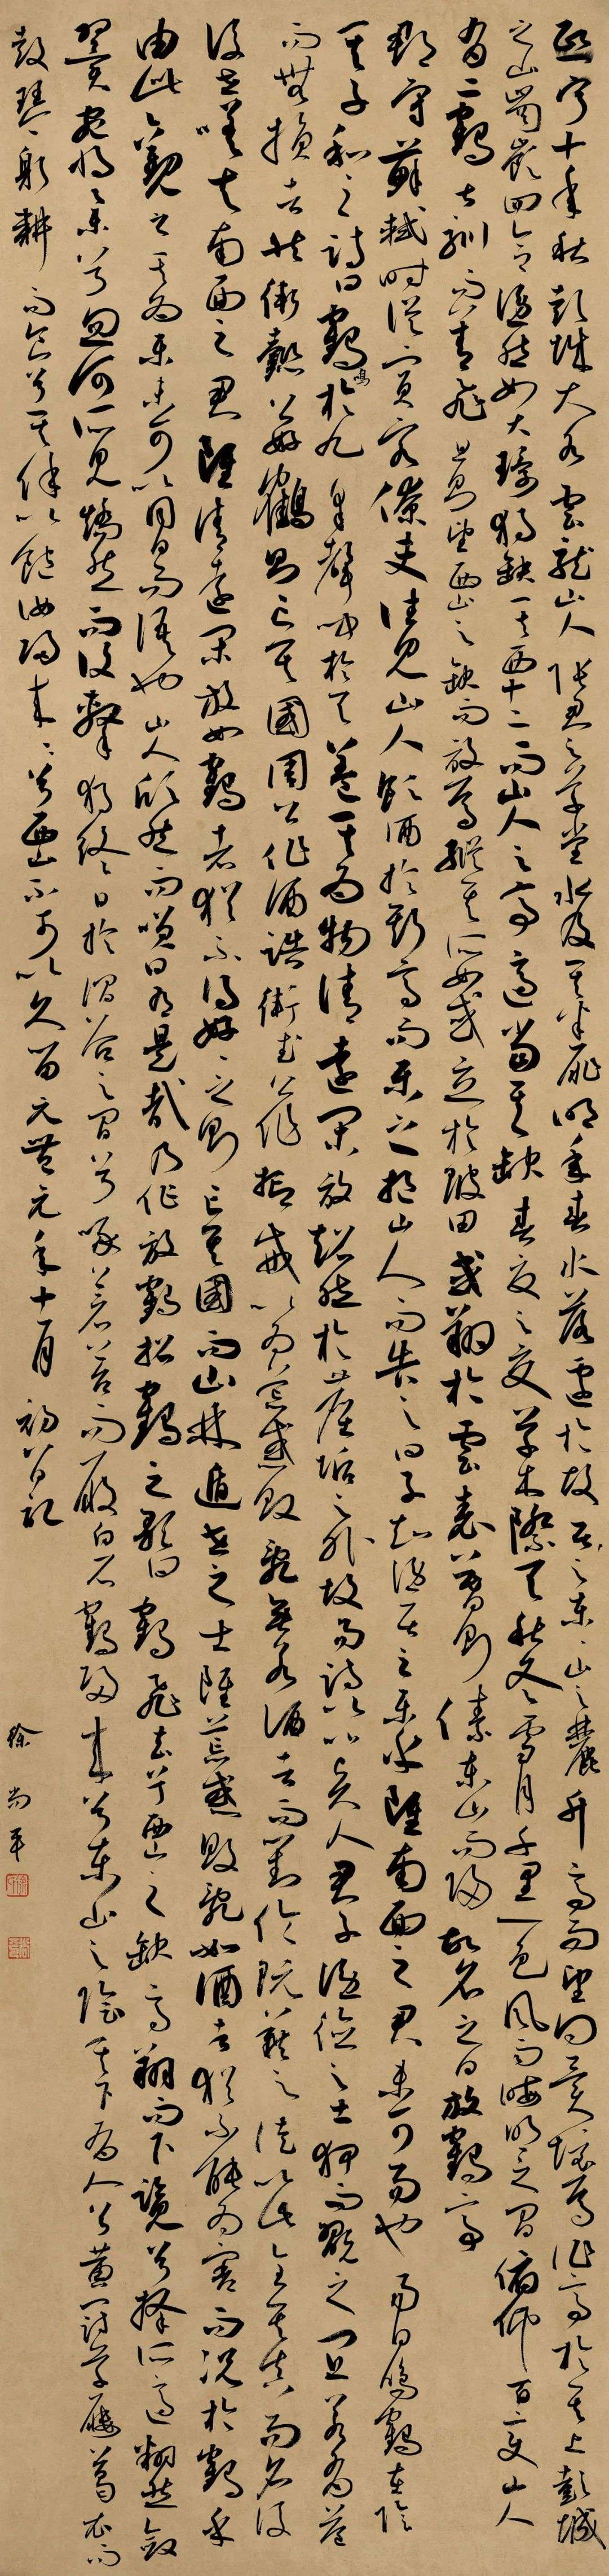 熙寧十年秋彭城大水雲龍山人張君之草堂水及其半扉明年春水落遷於故居之東東山之麓升高而望得異境焉作亭於其上彭城
之山岡嶺四合隱然如大環獨缺一其西十二而山人之亭適當其缺春夏之交草木際天秋冬雪月千里一色風雨晦明之間俯仰百變山人
有二鶴甚馴而善飛旦則望西山之缺而放焉縱其所如或立於陂田或翔於雲表暮則傃東山而歸故名之曰放鶴亭
郡守蘇軾時從賓客僚吏往見山人飲酒於斯亭而樂之挹山人而告之曰子知隱居之樂乎雖南面之君未可易也易曰鳴鶴在陰
其子和之詩曰鶴鳴於九皋聲聞於天蓋其為物清遠閑放超然於塵垢之外故易詩以比賢人君子隱德之士狎而玩之宜若有益
而無損者然衛懿公好鶴則亡其國周公作酒誥衛武公作抑戒以為荒惑敗亂無若酒者而劉伶阮籍之徒以此全其真而名後
後世嗟夫南面之君雖清遠閑放如鶴者猶不得好好之則亡其國而山林遁世之士雖荒惑敗亂如酒者猶不能為害而況於鶴乎
由此觀之其為樂未可以同日而語也山人欣然而笑曰有是哉乃作放鶴招鶴之歌曰鶴飛去兮西山之缺高翔而下覽兮擇所適翻然斂
翼宛將集兮忽何所見矯然而復擊獨終日於澗谷之間兮啄蒼苔而履白石鶴歸來兮東山之陰其下有人兮黃冠草屨葛衣而
鼓琴躬耕而食兮其餘以飽汝歸來歸來兮西山不可以久留元豐元年十月初八日記
徐尚平